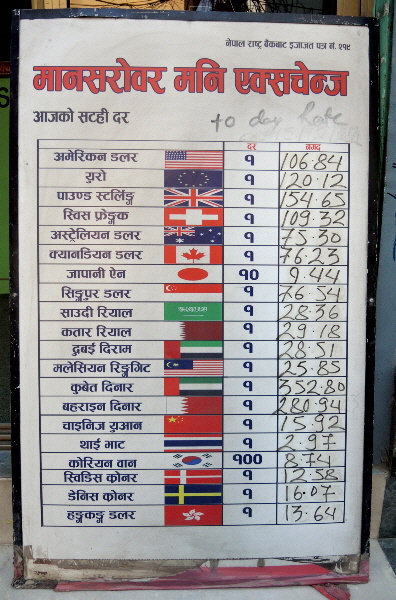 नेपाल राष्ट्र बैंकबाट इजाजत पत्र नं. २१९
मानसरोवर मनि एक्सचेन्ज
आजको सटही दर to day Rate
दर नगद
अमेरिकन डलर १ 106.84
युरो १ 120.12
पाउण्ड स्टर्लिङ्ग १ 154.65
स्विस फ्रेङ्क १ 109.32
अस्ट्रेलियन डलर १ 75.30
क्यानडियन डलर १ 76.23
जापानी ऐन १० 9.44
सिङ्गपुर डलर १ 76.54
साउदी रियाल १ 28.36
कतार रियाल १ 29.18
दुबई दिराम १ 28.51
मलेसियन रिङ्गगिट १ 25.85
कुबेत दिनार १ 352.80
बहराइन दिनार १ 280.94
चाइनिज युआन १ 15.92
थाई भाट १ 2.97
कोरियन वान १०० 8.74
स्विडिस क्रोनर १ 12.58
डेनिस क्रोनर १ 16.07
हङ्गकङ्ग डलर १ 13.64